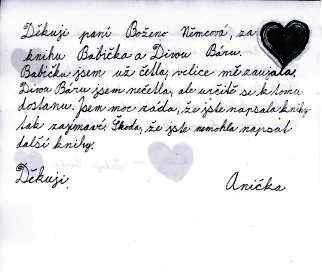 Děkuji paní Boženo Němcová, za
knihu Babička a Divou Báru.
Babičku jsem už četla, velice mě zaujala.
Divou Báru jsem nečetla, ale určitě se k tomu
dostanu. Jsem moc ráda, že jste napsala knihy
tak zajímavě. Škoda, že jste nemohla napsat
další knihy.
Děkuji,
Anička